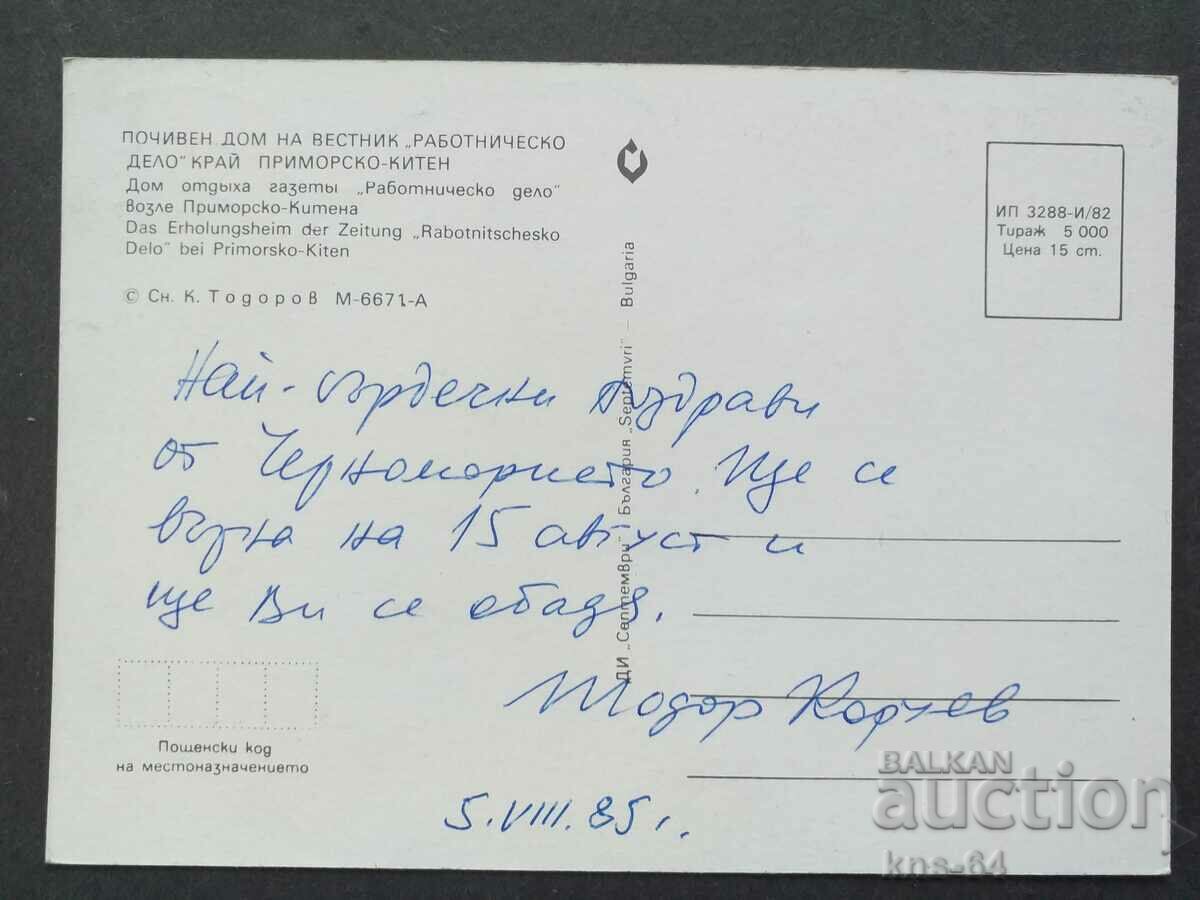 ПОЧИВЕН ДОМ НА ВЕСТНИК „РАБОТНИЧЕСКО
ДЕЛО" КРАЙ ПРИМОРСКО-КИТЕН
Дом отдыха газеты „Работническо дело"
возле Приморско-Китена
Das Erholungsheim der Zeitung „Rabotnitschesko
Delo" bei Primorsko-Kiten
© Сн. К. Тодоров М-6671-А
ИП 3288-И/82
Тираж 5 000
Цена 15 ст.
ДИ „Септември" България „Septemvri" – Bulgaria
Най-сърдечни поздрави
от Черноморието. Ще се
върна на 15 август и
ще Ви се обадя.
Тодор
5.VIII.85 г.
Пощенски код
на местоназначението
BALKAN
auction
kns-64